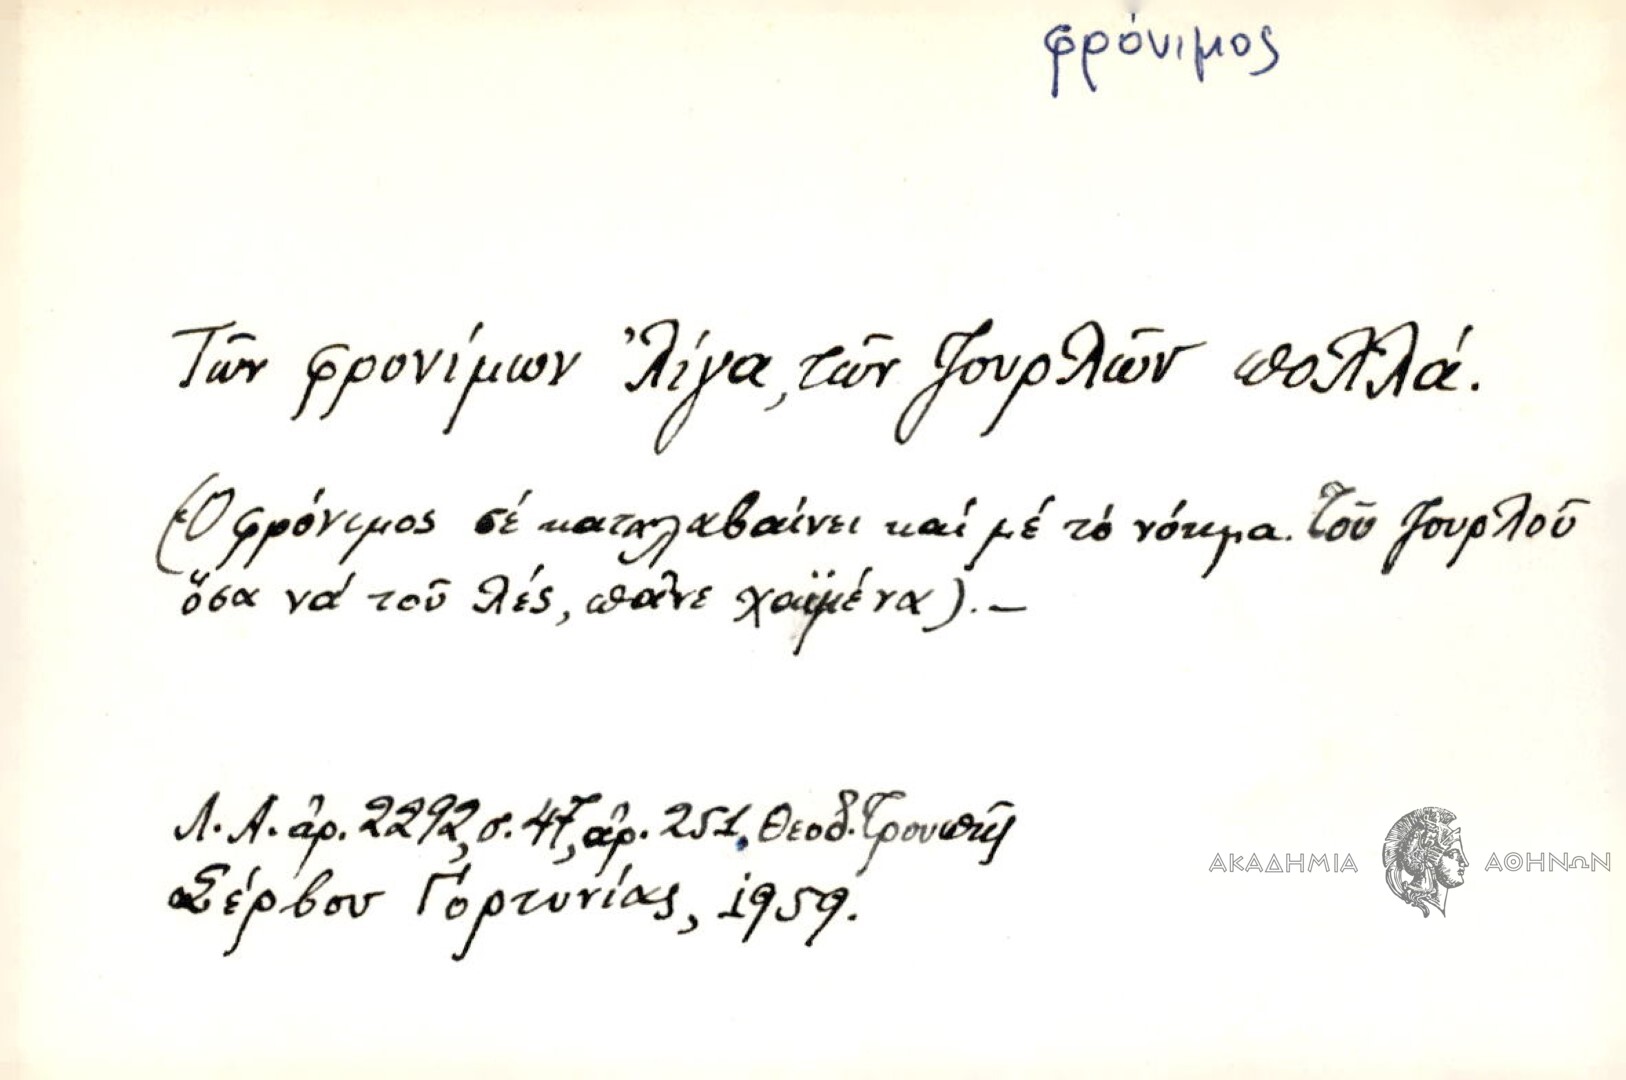 φρόνιμος
Τῶν φρονίμων ᾿λίγα, τῶν ζουρλῶν πολλά.
(Ὁ φρόνιμος σέ καταλαβαίνει καί μέ τό νόημα. Τοῦ ζουρλοῦ
ὅσα νά τοῦ λές, πᾶνε χαϊμένα).—
Λ.Α. ἀρ. 2292, σ. 47, ἀρ. 251, Θεοδ. Τρουπῆς
Σέρβου Γορτυνίας, 1959.
ΑΚΑΔΗΜΙΑ ΑΘΗΝΩΝ